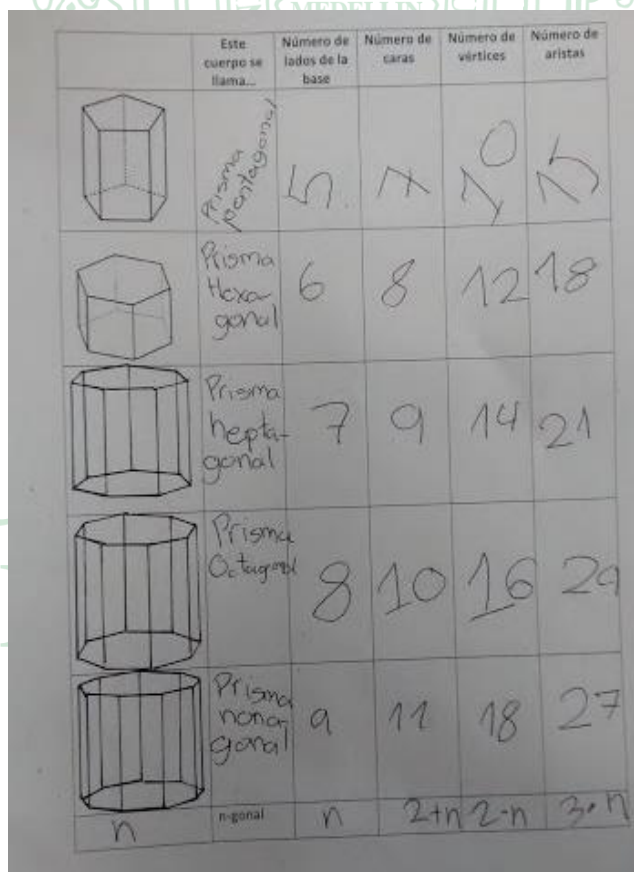 MEDELLIN
Este cuerpo se llama... Número de lados de la base Número de caras Número de vértices Número de aristas
Prisma pentagonal 5. 7 10 15
Prisma Hexa-gonal 6 8 12 18
Prisma hepta-gonal 7 9 14 21
Prisma Octagonal 8 10 16 24
Prisma nona-gonal 9 11 18 27
n n-gonal n 2+n 2·n 3·n